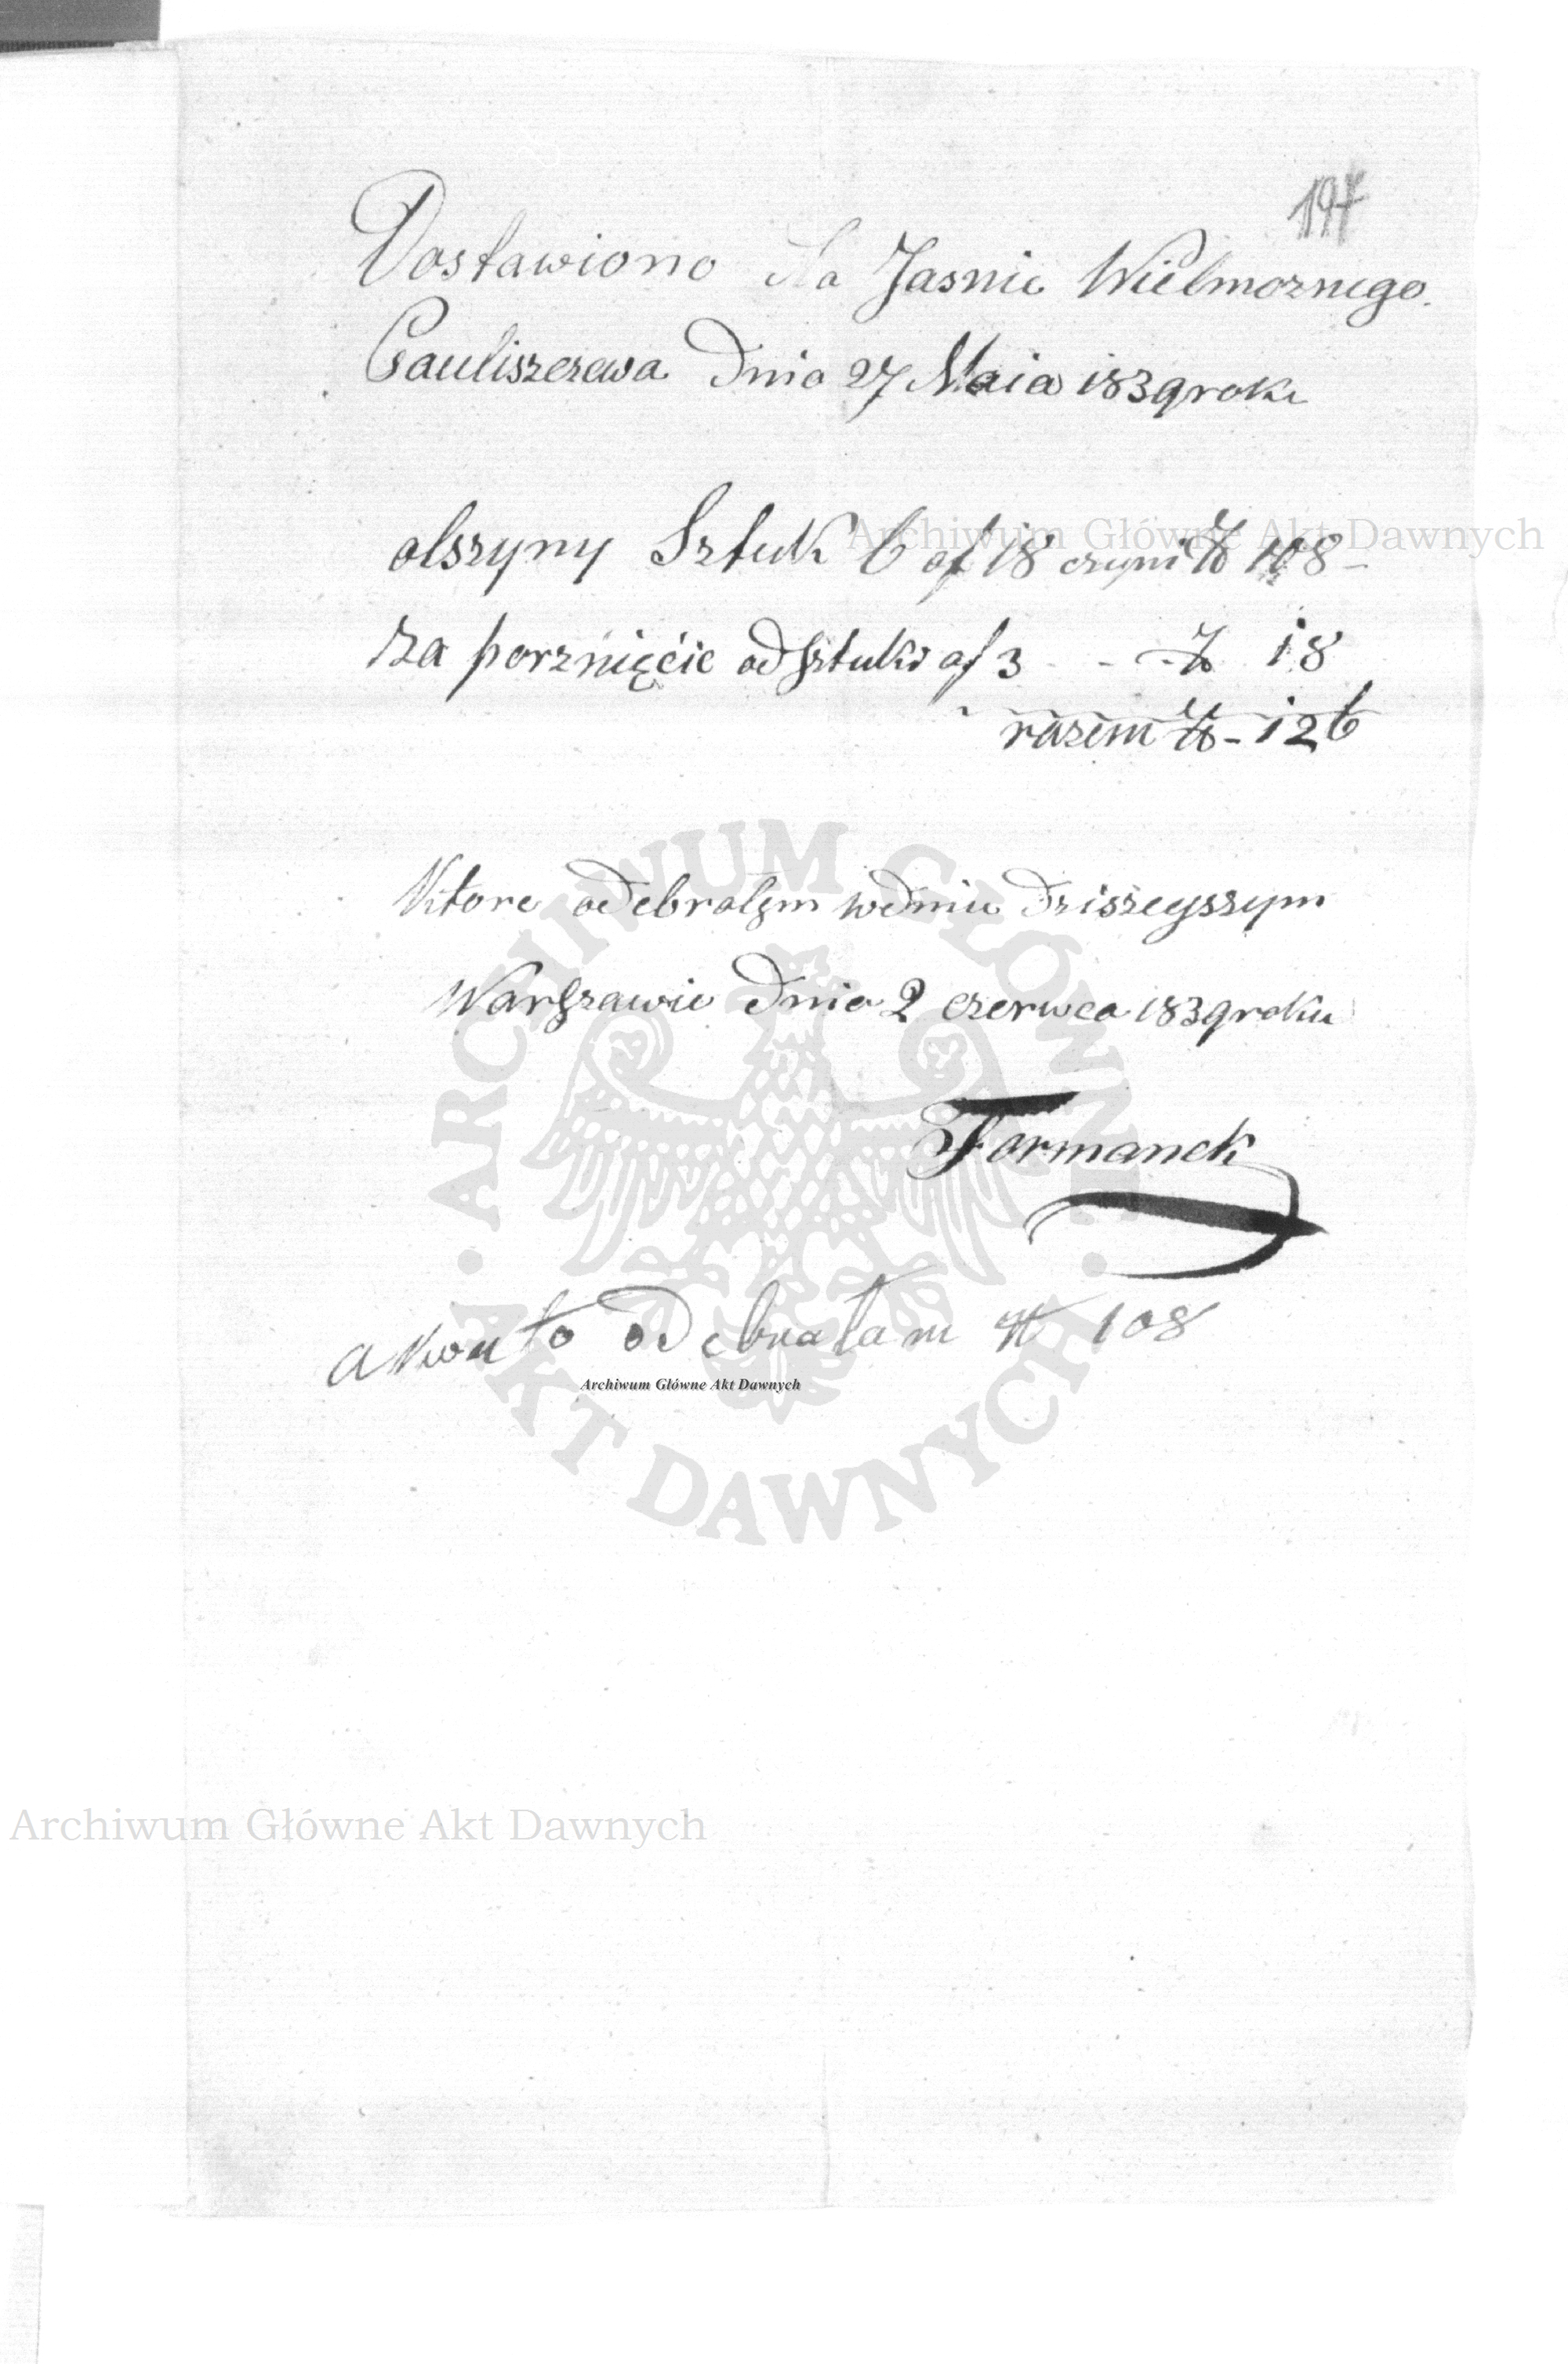 197
Dostawiono dla Jasnie Wielmoznego
Pauliszczewa Dnia 27 Maia 1839 roku
olszyny Sztuk 6 af 18 czyni zł 108 -
Za porznięćie od Sztuki af 3 - - - zł 18
razem zł - 126
Ktore odebrałem w dniu dzisieyszym
Warszawie dnia 2 czerwca 1839 roku
Formanek
a kwoto odebrałam zł 108
Archiwum Główne Akt Dawnych
Archiwum Główne Akt Dawnych
Archiwum Główne Akt Dawnych
ARCHIWUM GŁÓWNE AKT DAWNYCH